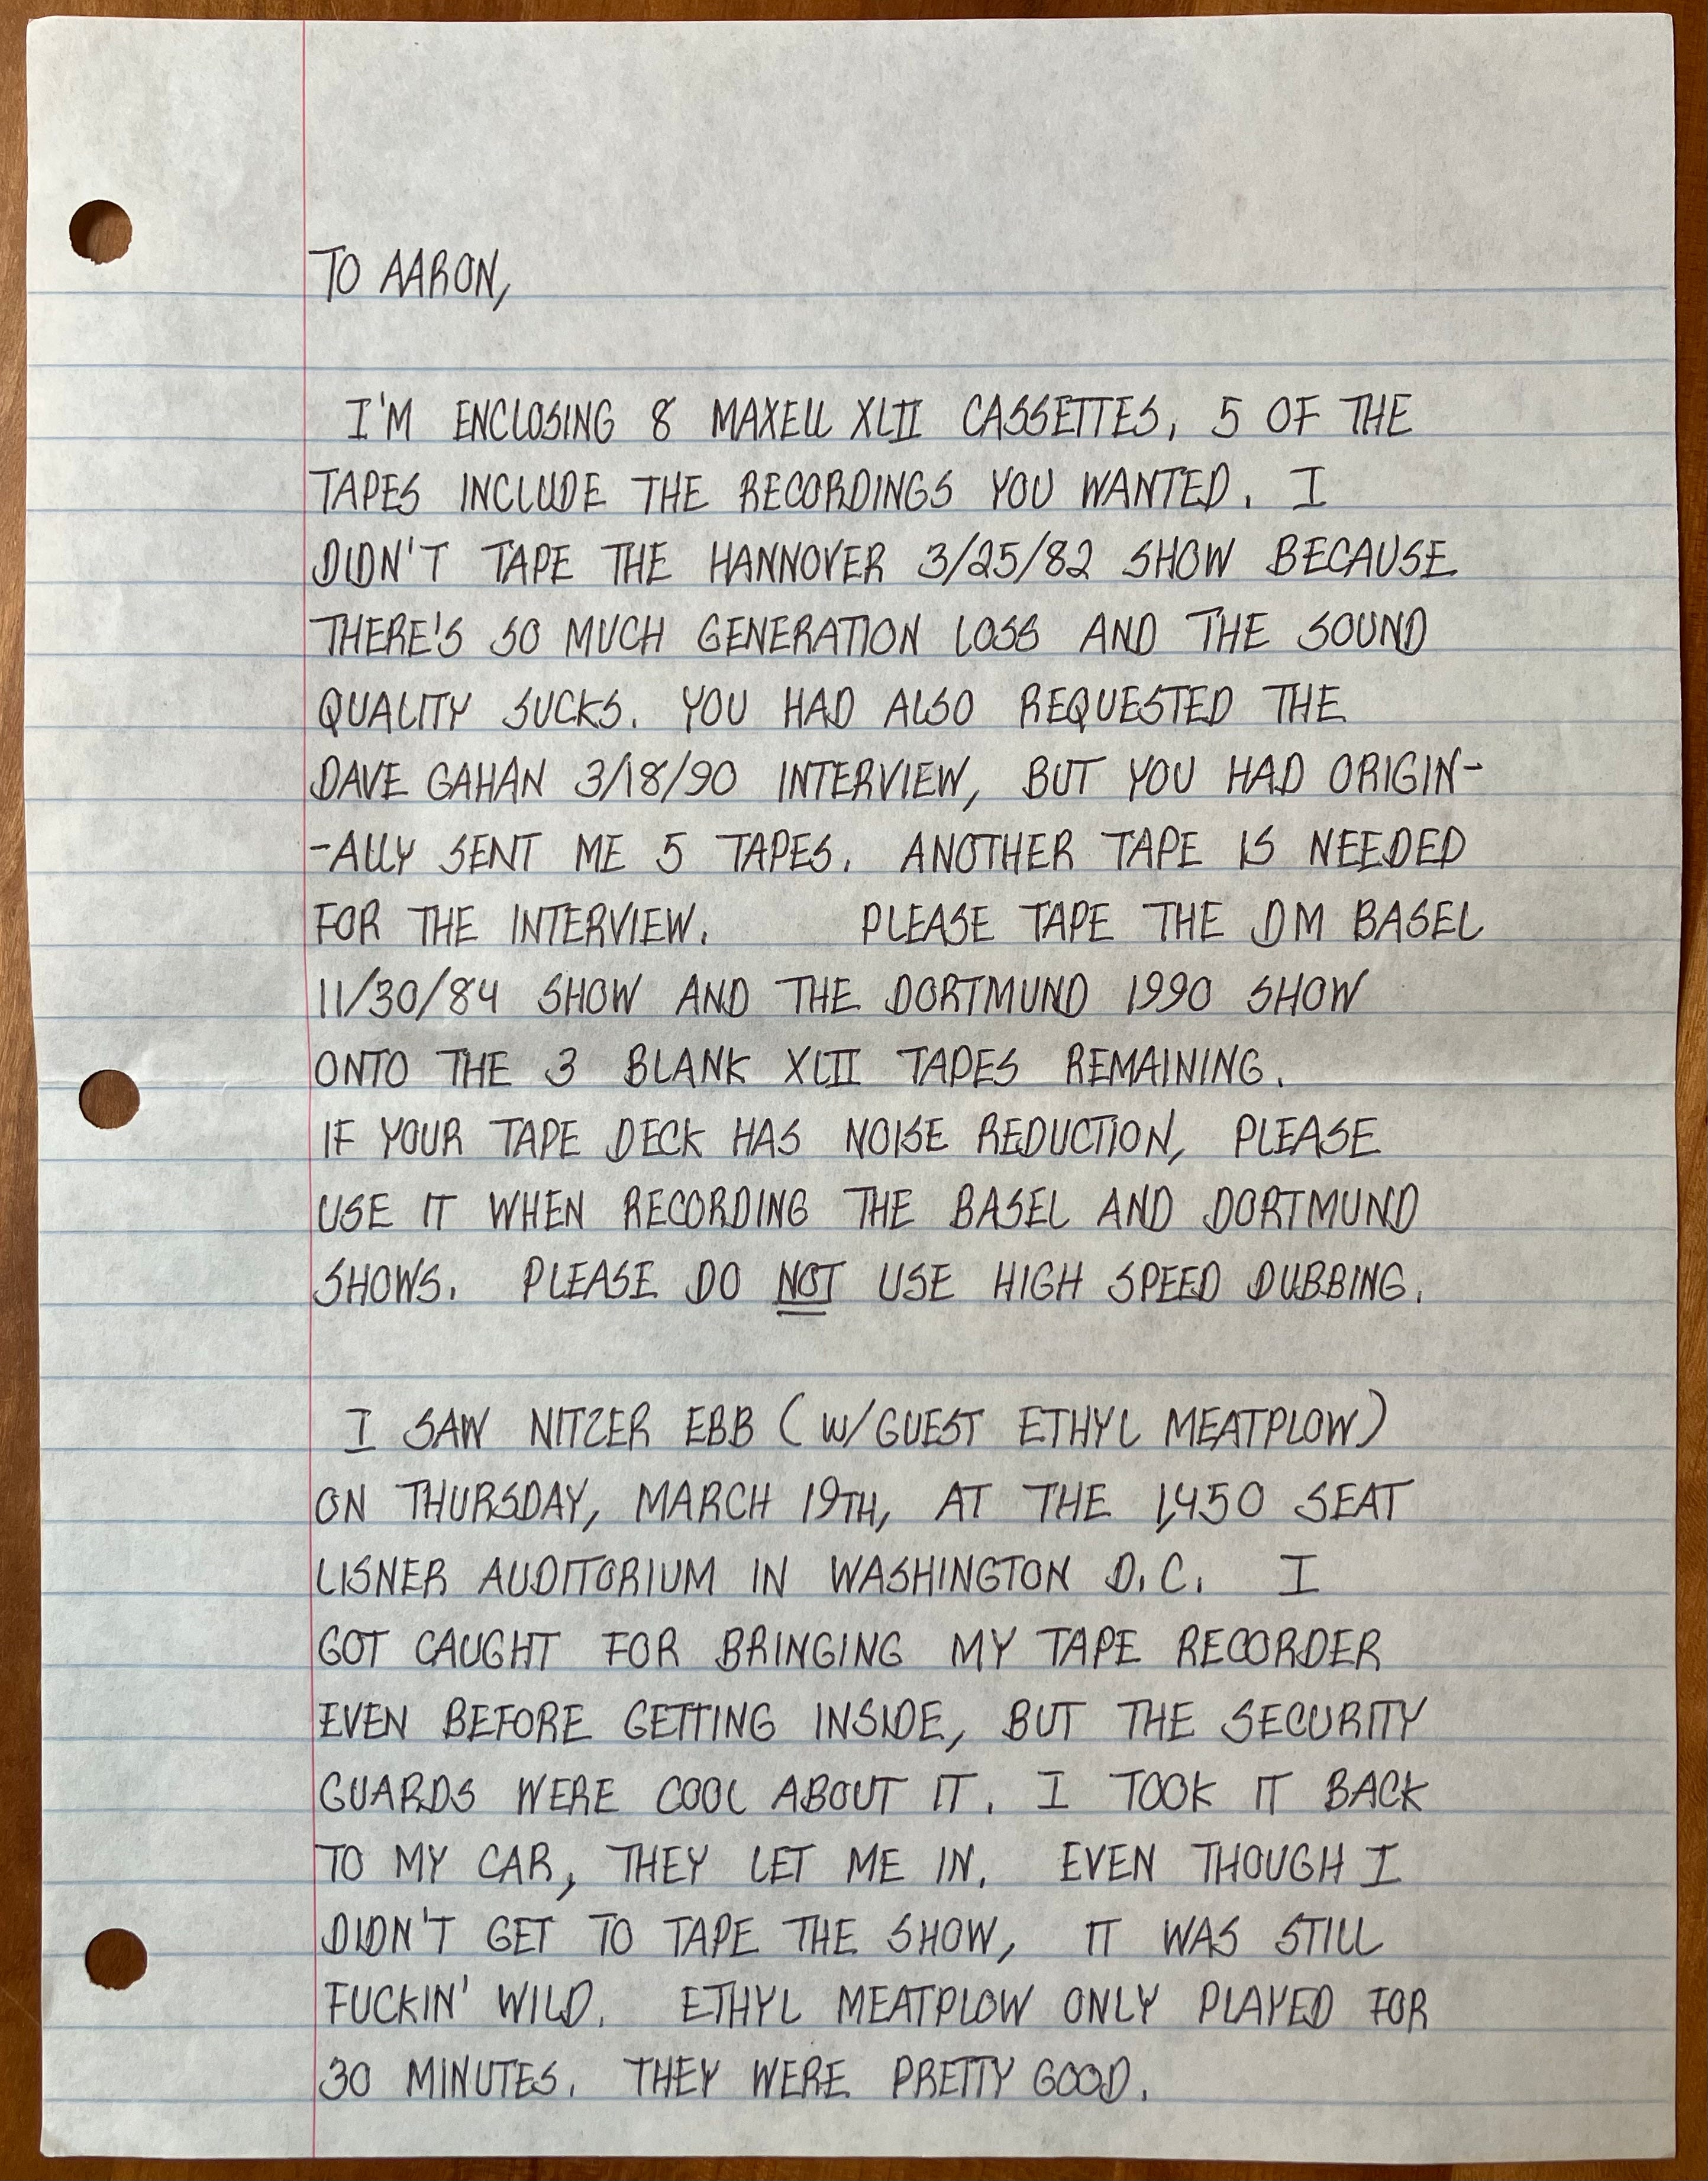 TO AARON,
I'M ENCLOSING 8 MAXELL XLII CASSETTES, 5 OF THE
TAPES INCLUDE THE RECORDINGS YOU WANTED. I
DIDN'T TAPE THE HANNOVER 3/25/82 SHOW BECAUSE
THERE'S SO MUCH GENERATION LOSS AND THE SOUND
QUALITY SUCKS. YOU HAD ALSO REQUESTED THE
DAVE GAHAN 3/18/90 INTERVIEW, BUT YOU HAD ORIGIN-
-ALLY SENT ME 5 TAPES. ANOTHER TAPE IS NEEDED
FOR THE INTERVIEW. PLEASE TAPE THE DM BASEL
11/30/84 SHOW AND THE DORTMUND 1990 SHOW
ONTO THE 3 BLANK XLII TAPES REMAINING.
IF YOUR TAPE DECK HAS NOISE REDUCTION, PLEASE
USE IT WHEN RECORDING THE BASEL AND DORTMUND
SHOWS. PLEASE DO NOT USE HIGH SPEED DUBBING.
I SAW NITZER EBB (W/GUEST ETHYL MEATPLOW)
ON THURSDAY, MARCH 19TH, AT THE 1,450 SEAT
LISNER AUDITORIUM IN WASHINGTON D.C. I
GOT CAUGHT FOR BRINGING MY TAPE RECORDER
EVEN BEFORE GETTING INSIDE, BUT THE SECURITY
GUARDS WERE COOL ABOUT IT. I TOOK IT BACK
TO MY CAR, THEY LET ME IN. EVEN THOUGH I
DIDN'T GET TO TAPE THE SHOW, IT WAS STILL
FUCKIN' WILD. ETHYL MEATPLOW ONLY PLAYED FOR
30 MINUTES. THEY WERE PRETTY GOOD.